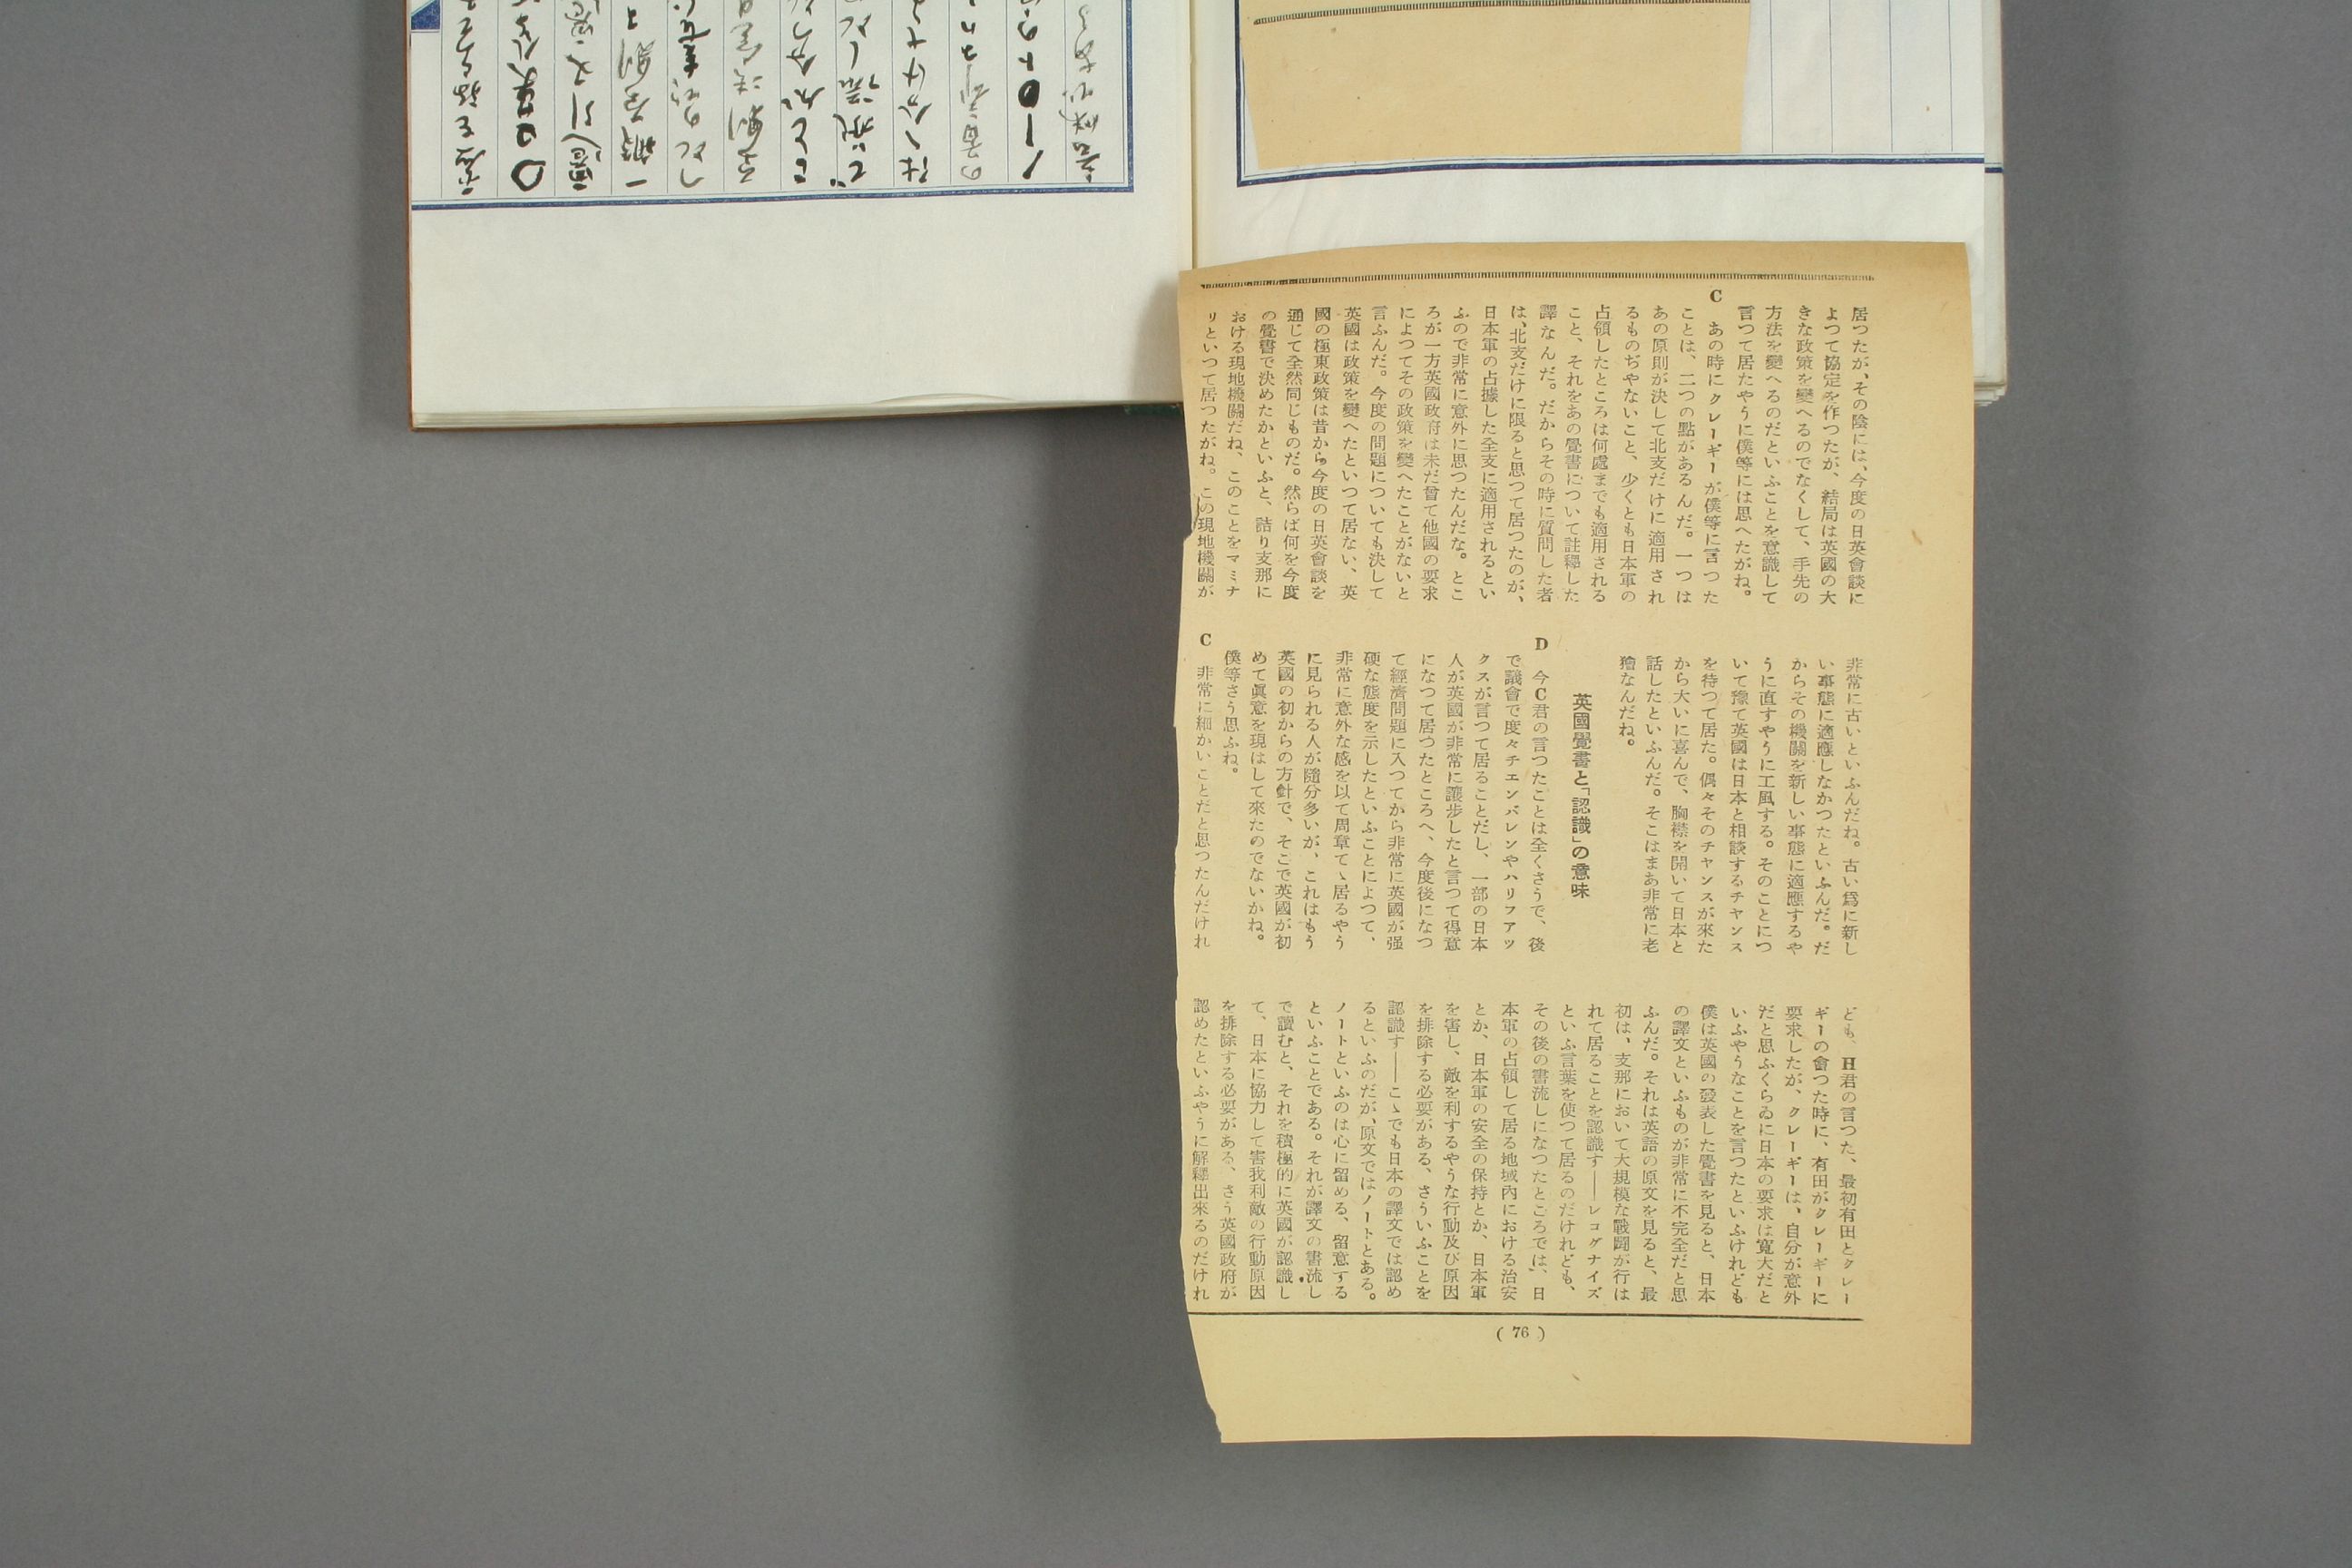 居つたが、その陰には、今度の日英會談に
よつて協定を作つたが、結局は英國の大
きな政策を變へるのでなくして、手先の
方法を變へるのだといふことを意識して
言つて居たやうに僕等には思へたがね。
C あの時にクレーギーが僕等に言つた
ことは、二つの點があるんだ。一つは
あの原則が決して北支だけに適用され
るものぢやないこと、少くとも日本軍の
占領したところは何處までも適用される
こと、それをあの覺書について註釋した
譯なんだ。だからその時に質問した者
は、北支だけに限ると思つて居つたのが、
日本軍の占據した全支に適用されるとい
ふので非常に意外に思つたんだな。とこ
ろが一方英國政府は未だ曾て他國の要求
によつてその政策を變へたことがないと
言ふんだ。今度の問題についても決して
英國は政策を變へたといつて居ない、英
國の極東政策は昔から今度の日英會談を
通じて全然同じものだ。然らば何を今度
の覺書で決めたかといふと、詰り支那に
おける現地機關だね、このことをマミナ
リといつて居つたがね。この現地機關が
非常に古いといふんだね。古い爲に新し
い事態に適應しなかつたといふんだ。だ
からその機關を新しい事態に適應するや
うに直すやうに工風する。そのことにつ
いて豫て英國は日本と相談するチャンス
を待つて居た。偶々そのチャンスが來た
から大いに喜んで、胸襟を開いて日本と
話したといふんだ。そこはまあ非常に老
獪なんだね。
英國覺書と「認識」の意味
D 今C君の言つたことは全くさうで、後
で議會で度々チエンバレンやハリフアツ
クスが言つて居ることだし、一部の日本
人が英國が非常に讓步したと言つて得意
になつて居つたところへ、今度後になつ
て經濟問題に入つてから非常に英國が强
硬な態度を示したといふことによつて、
非常に意外な感を以て周章てゝ居るやう
に見られる人が隨分多いが、これはもう
英國の初からの方針で、そこで英國が初
めて眞意を現はして來たのでないかね。
僕等さう思ふね。
C 非常に細かいことだと思つたんだけれ
ども、H君の言つた、最初有田とクレー
ギーの會つた時に、有田がクレーギーに
要求したが、クレーギーは、自分が意外
だと思ふくらゐに日本の要求は寬大だと
いふやうなことを言つたといふけれども
僕は英國の發表した覺書を見ると、日本
の譯文といふものが非常に不完全だと思
ふんだ。それは英語の原文を見ると、最
初は、支那において大規模な戰鬪が行は
れて居ることを認識す――レコグナイズ
といふ言葉を使つて居るのだけれども、
その後の書流しになつたところでは、日
本軍の占領して居る地域內における治安
とか、日本軍の安全の保持とか、日本軍
を害し、敵を利するやうな行動及び原因
を排除する必要がある、さういふことを
認識す――こゝでも日本の譯文では認め
るといふのだが、原文ではノートとある。
ノートといふのは心に留める、留意する
といふことである。それが譯文の書流し
で讀むと、それを積極的に英國が認識し
て、日本に協力して害我利敵の行動原因
を排除する必要がある、さう英國政府が
認めたといふやうに解釋出來るのだけれ
( 76 )